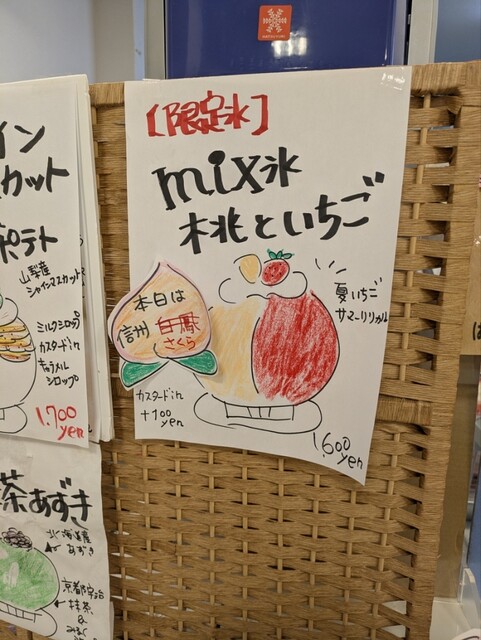 [限定氷]
mix氷
桃といちご
本日は
信州
さくら
夏いちご
サマーリリカル
カスタードin
+100
yen
1,600
yen
イン
カット
ポテト
山梨産
シャインマスカット
ミルクシロップ
カスタードin
キャラメル
シロップ
1,700
yen
茶あずき
北海道産
あずき
京都宇治
抹茶
&